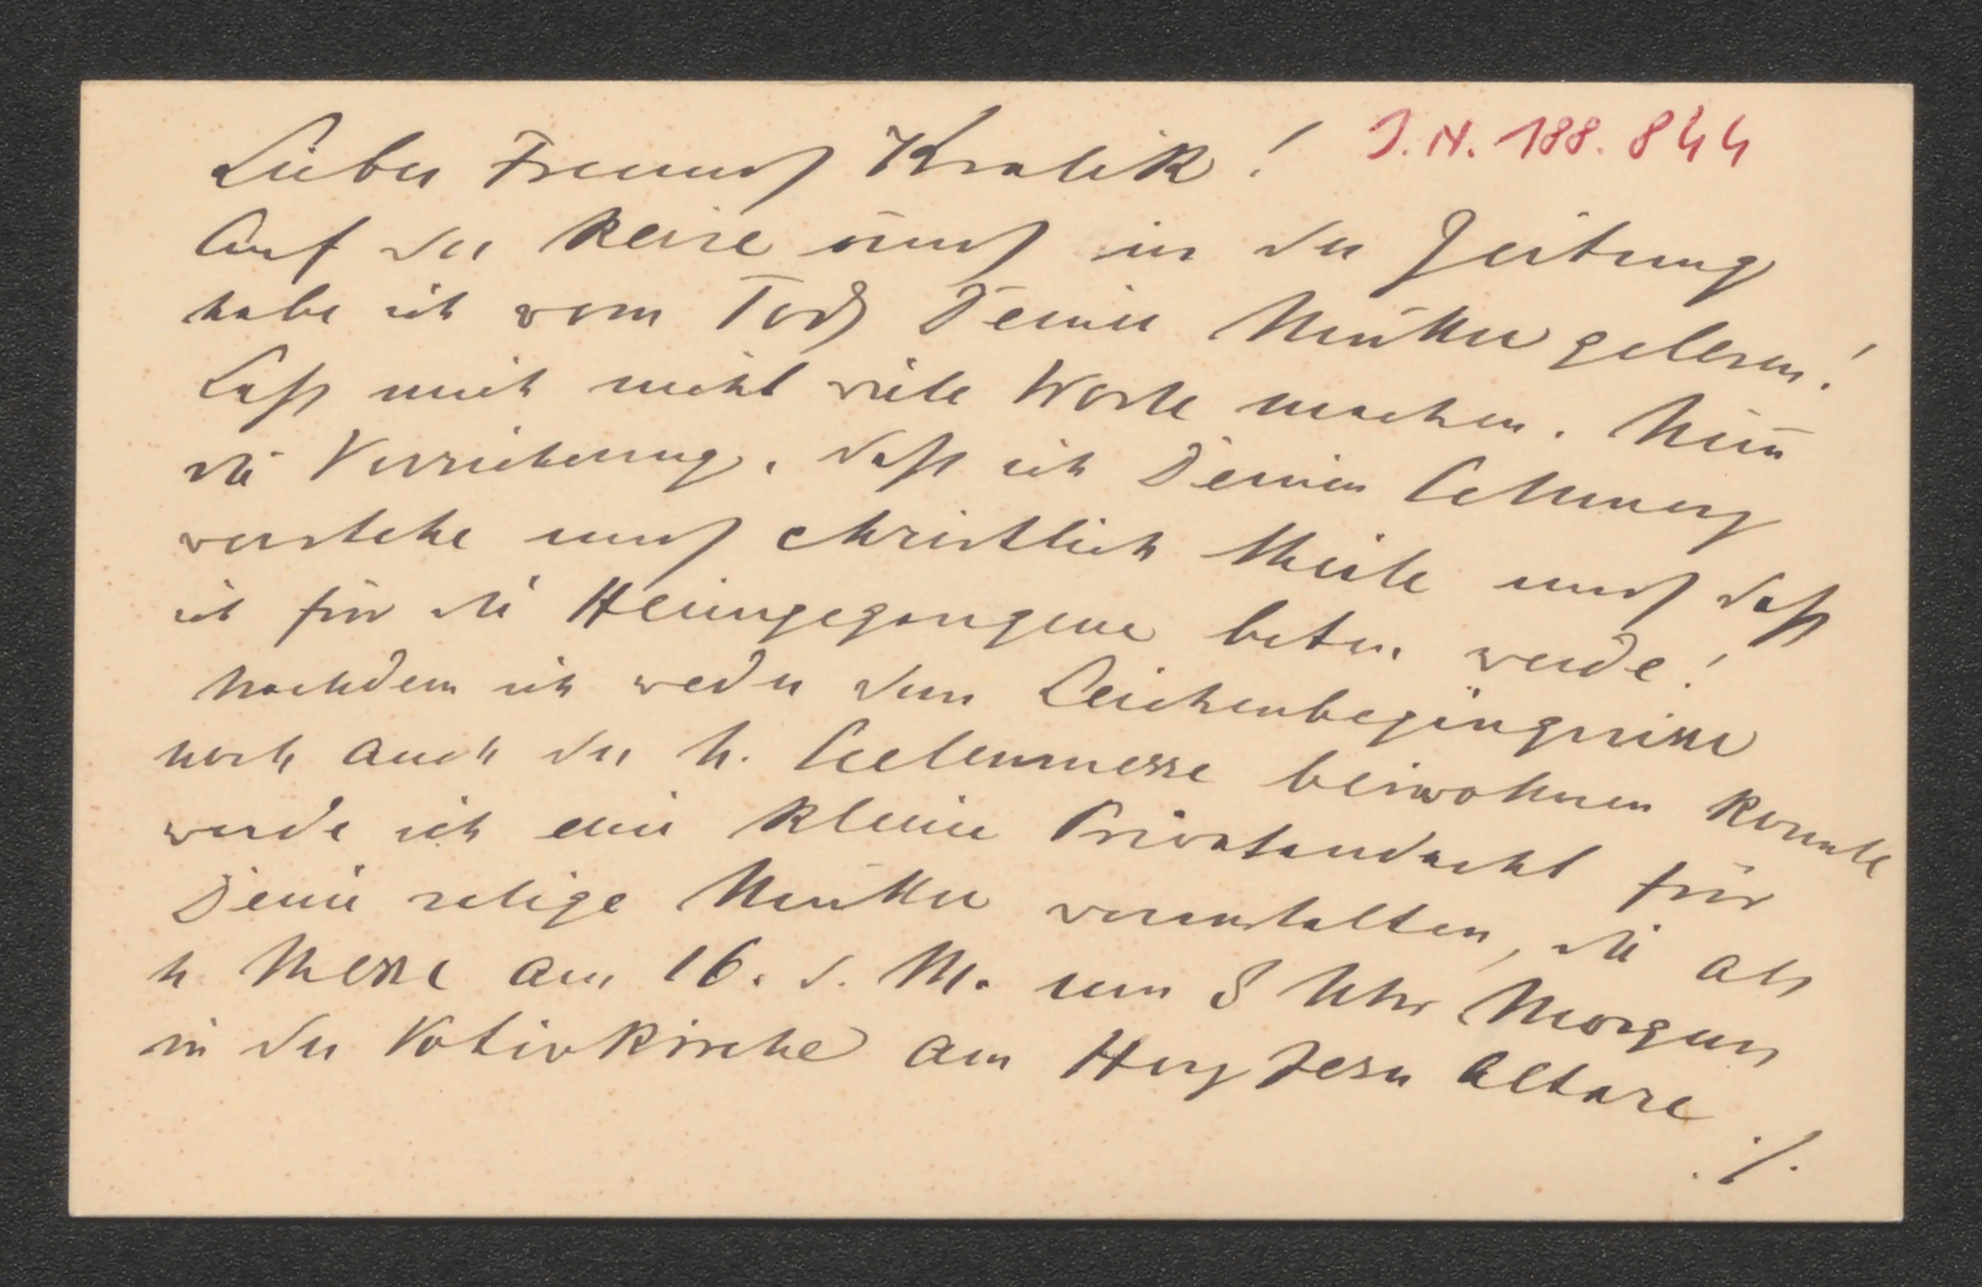 Lieber Freund Kralik! J.N. 188.844
Auf der Reise und in der Zeitung
habe ich vom Tod Deiner Mutter gelesen!
Lass mich nicht viele Worte machen. Nim̅
die Versicherung, dass ich Deinen Schmerz
verstehe und christlich theile und dass
ich für die Heimgegangene beten werde!
Nachdem ich weder dem Leichenbegängnisse
noch auch der h. Seelenmesse beiwohnen konnte
werde ich eine kleine Privatandacht für
Deine selige Mutter veranstalten, die als
h. Messe am 16. d. M. um 8 Uhr Morgens
in der Votivkirche am Herz Jesu Altare
./.